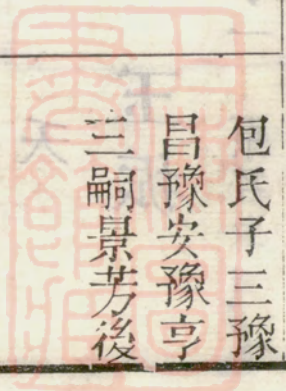 包氏子三豫
昌豫安豫亨
三嗣景芳後